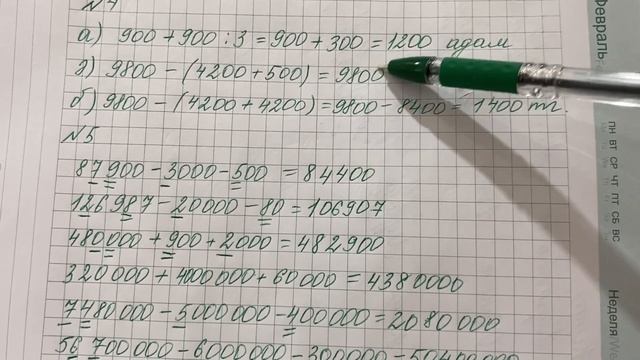 №4
а) 900 + 900 : 3 = 900 + 300 = 1200 адам
2) 9800 - (4200 + 500) = 9800
б) 9800 - (4200 + 4200) = 9800 - 8400 = 1400 тг.
№5
87900 - 3000 - 500 = 84400
126987 - 20000 - 80 = 106907
480000 + 900 + 2000 = 482900
320000 + 4000000 + 60000 = 4380000
7480000 - 5000000 - 400000 = 2080000
56700000 - 6000000 - 300000 = 50400000
Февраль
ПН ВТ СР ЧТ ПТ СБ ВС
Неделя